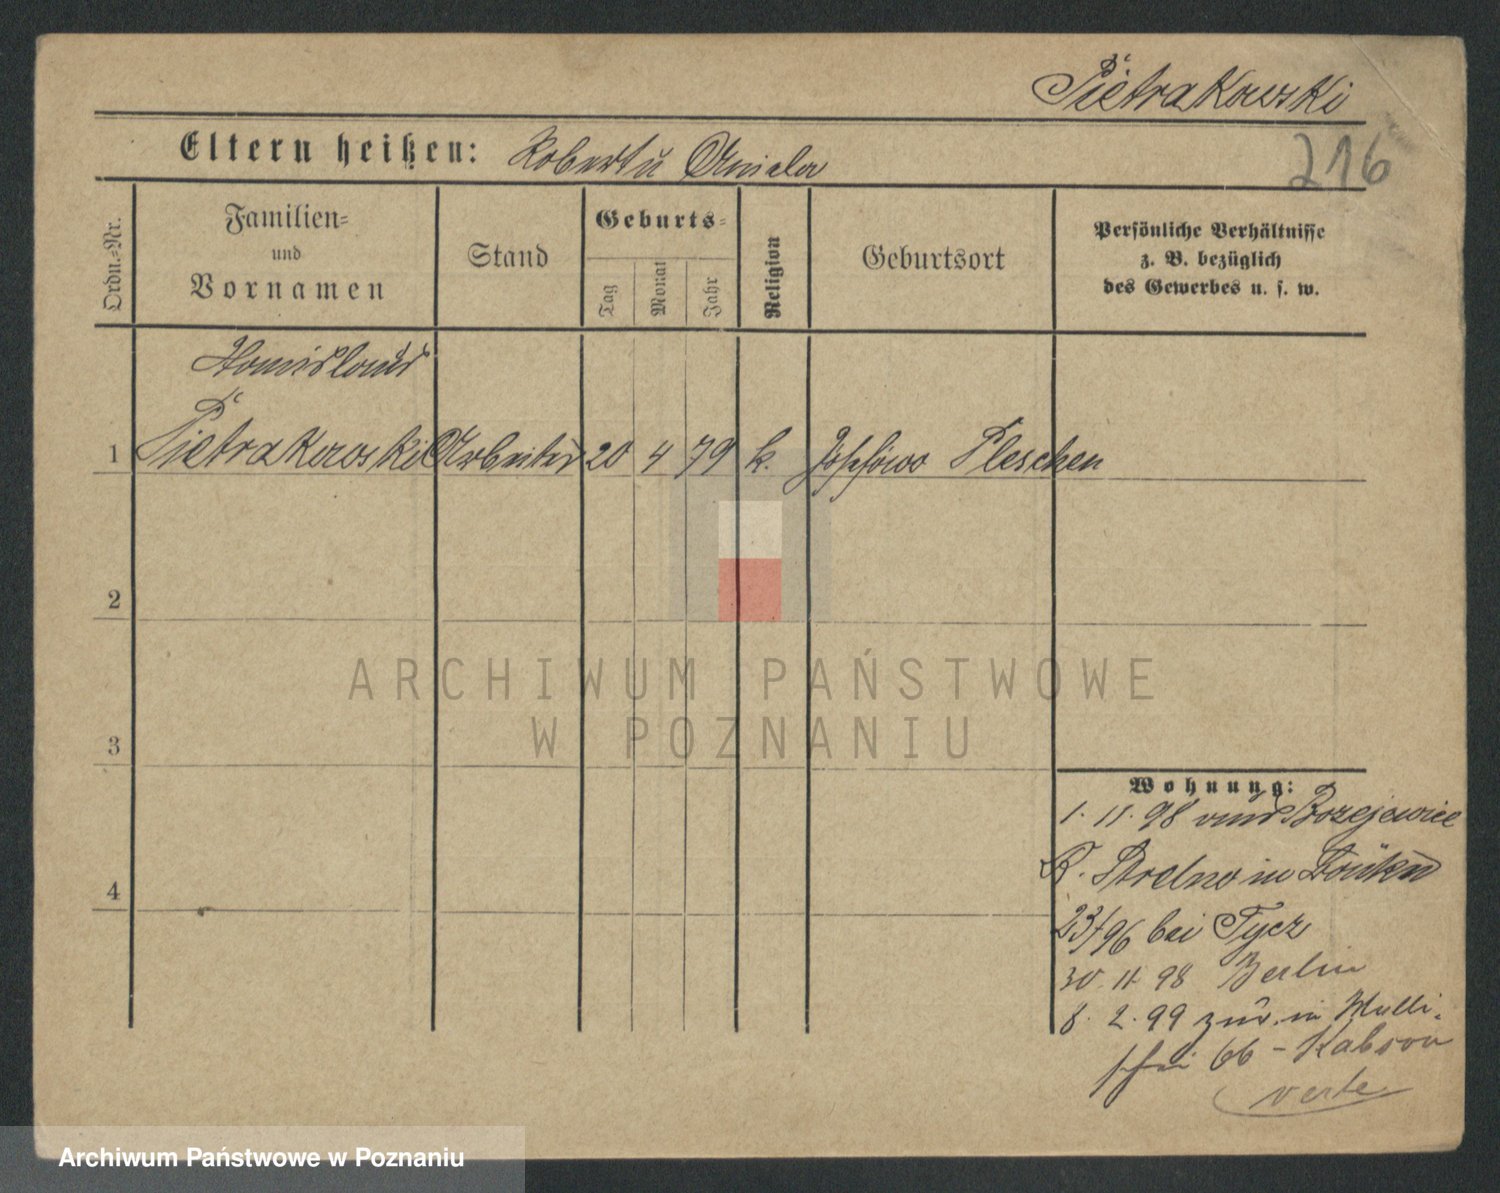 Pietrakowski
216
Eltern heißen: Robert u Aniela
Ordn.-Nr.
Familien-
und
Vornamen
Stand
Geburts-
Tag
Monat
Jahr
Religion
Geburtsort
Persönliche Verhältnisse
z. B. bezüglich
des Gewerbes u. s. w.
1 Pietrakowski Arbeiter 20 4 79 k. Pleschen
2
3
4
Wohnung:
1. 11. 98 Bozejewice
K. Strelno in
23/ 96 bei Tycz
30. 11 98 Berlin
8. 2. 99 zur. in
66 -
verte
ARCHIWUM PAŃSTWOWE
W POZNANIU
Archiwum Państwowe w Poznaniu